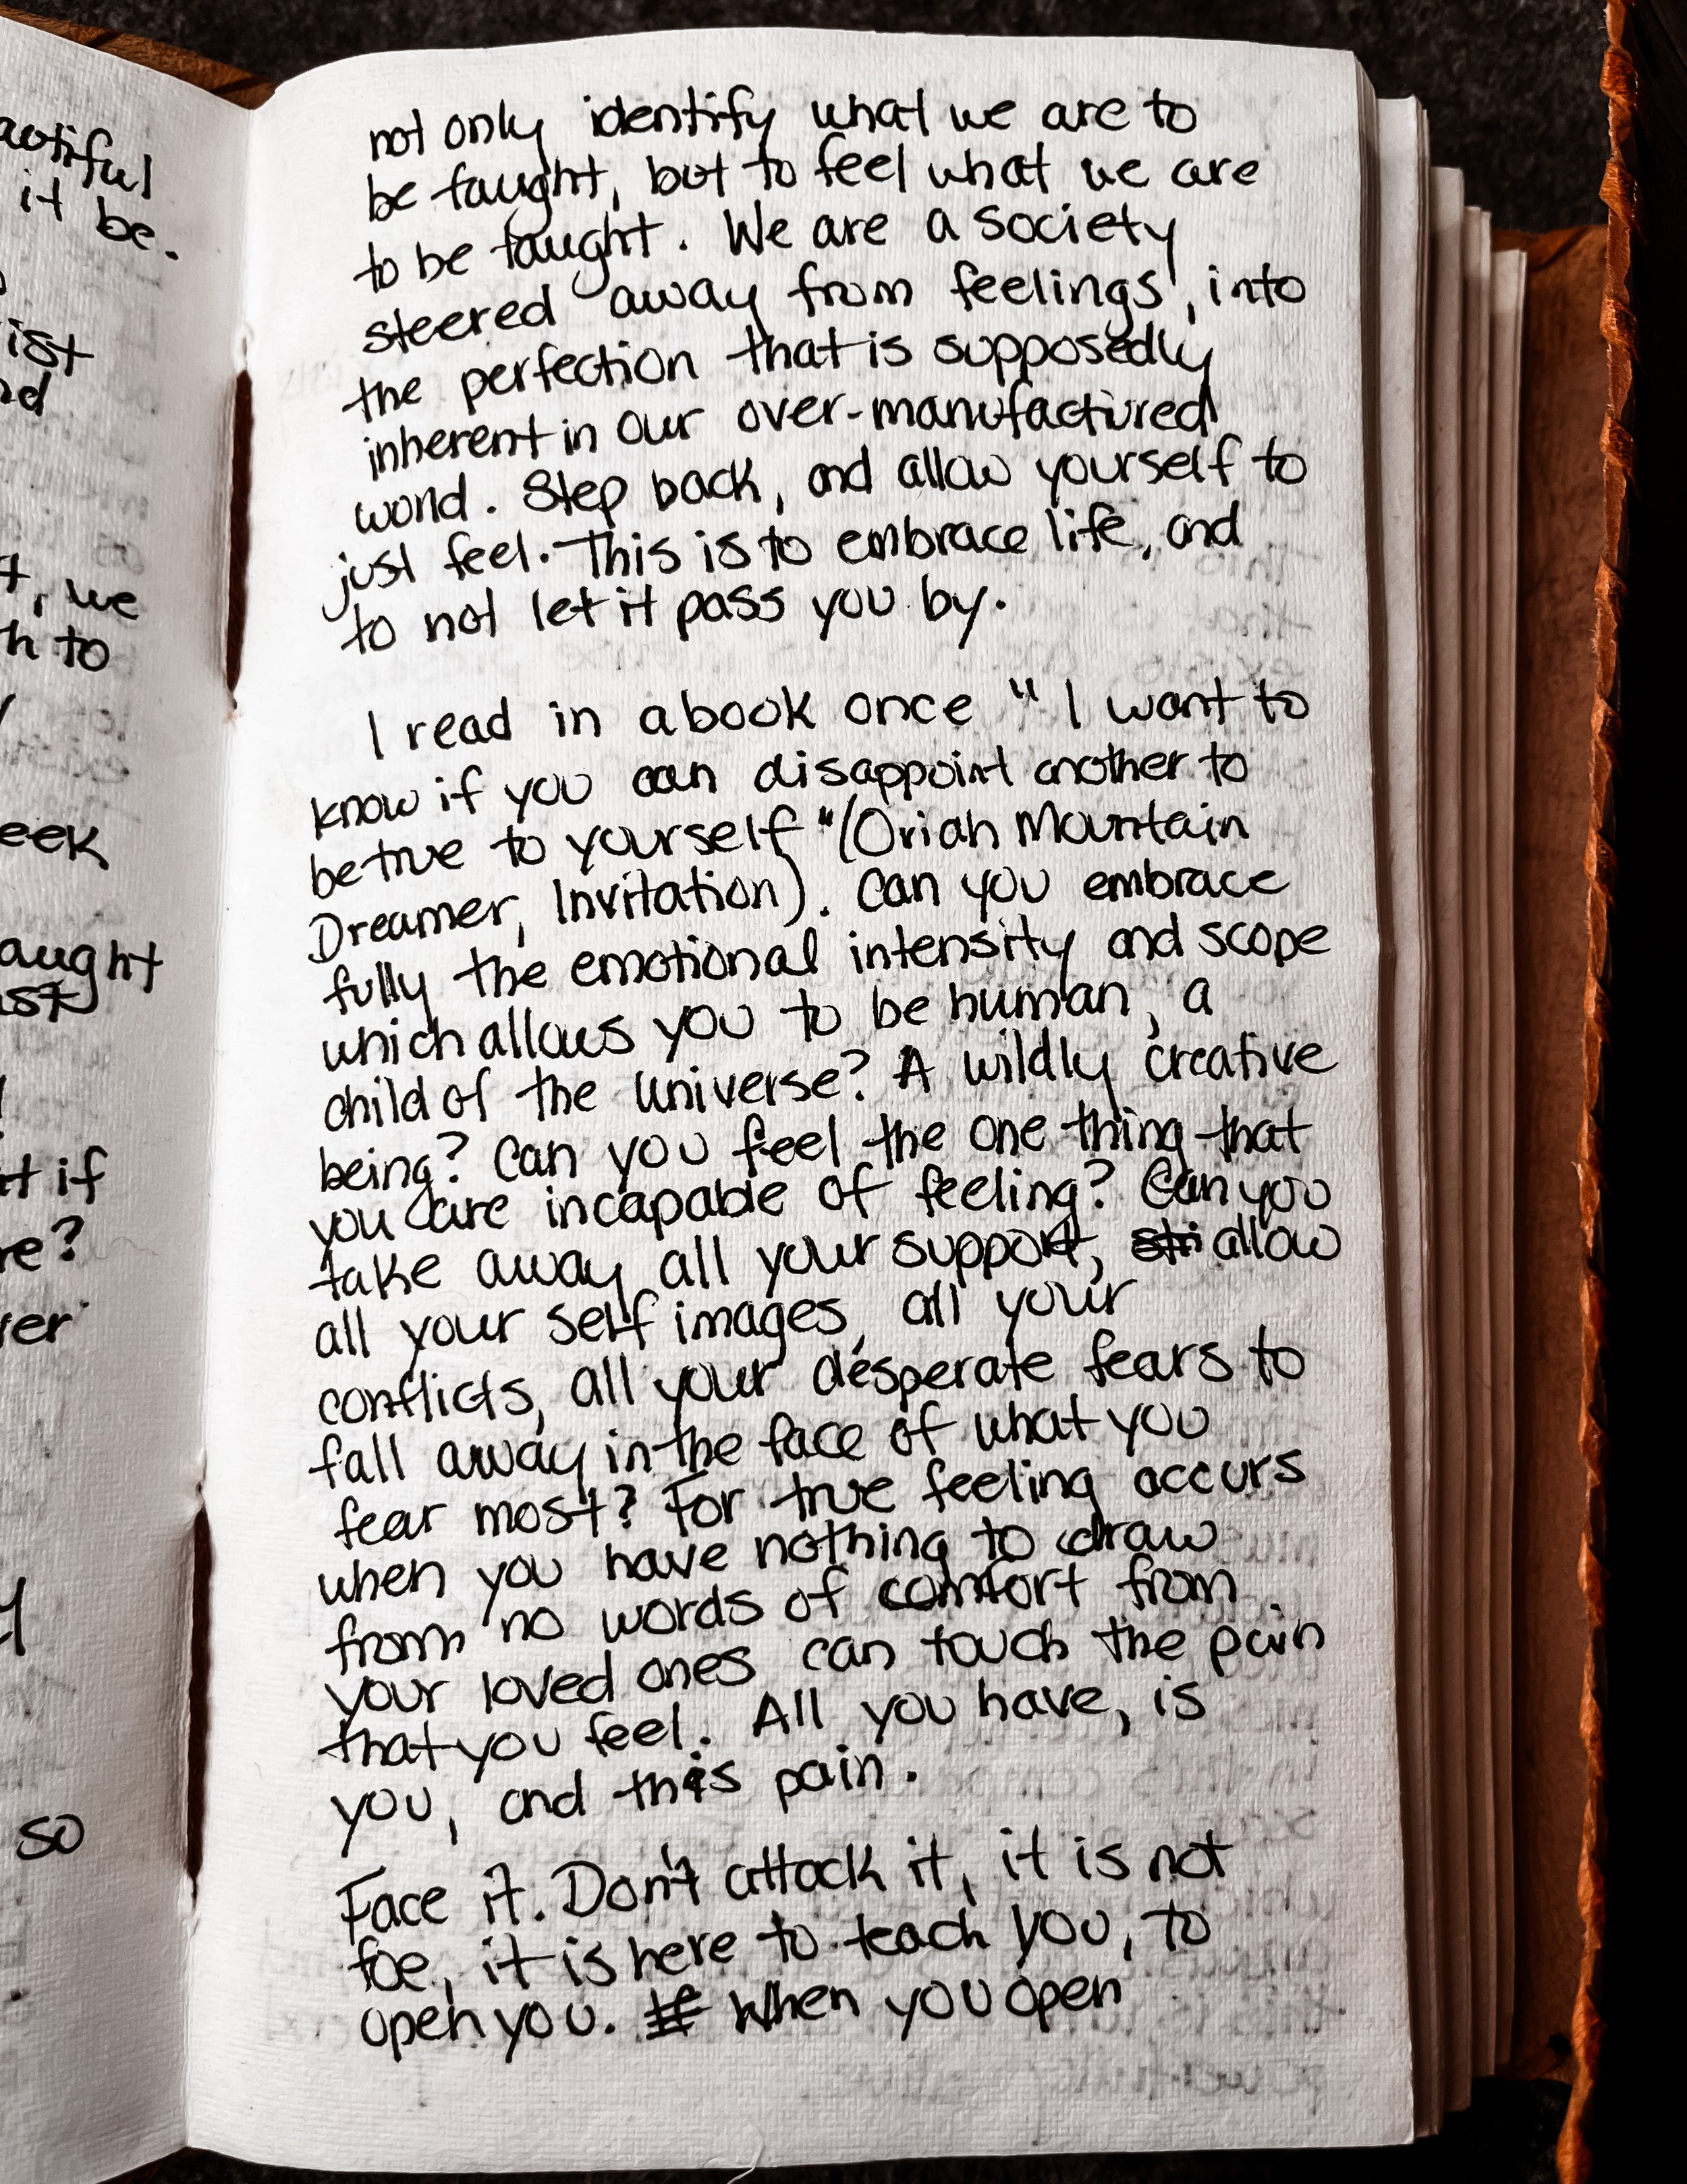 autiful
it be.
ist
nd
t, we
h to
eek
aught
ast
t if
re?
ver
y
so
not only identify what we are to
be taught, but to feel what we are
to be taught. We are a society
steered away from feelings, into
the perfection that is supposedly
inherent in our over-manufactured
world. Step back, and allow yourself to
just feel. This is to embrace life, and
to not let it pass you by.
I read in a book once "I want to
know if you can disappoint another to
be true to yourself" (Oriah Mountain
Dreamer, Invitation). Can you embrace
fully the emotional intensity and scope
which allows you to be human, a
child of the universe? A wildly creative
being? Can you feel the one thing that
you are incapable of feeling? Can you
take away all your support, stri allow
all your self images, all your
conflicts, all your desperate fears to
fall away in the face of what you
fear most? For true feeling occurs
when you have nothing to draw
from no words of comfort from
your loved ones can touch the pain
that you feel. All you have, is
you, and this pain.
Face it. Don't attack it, it is not
foe, it is here to teach you, to
open you. If When you open